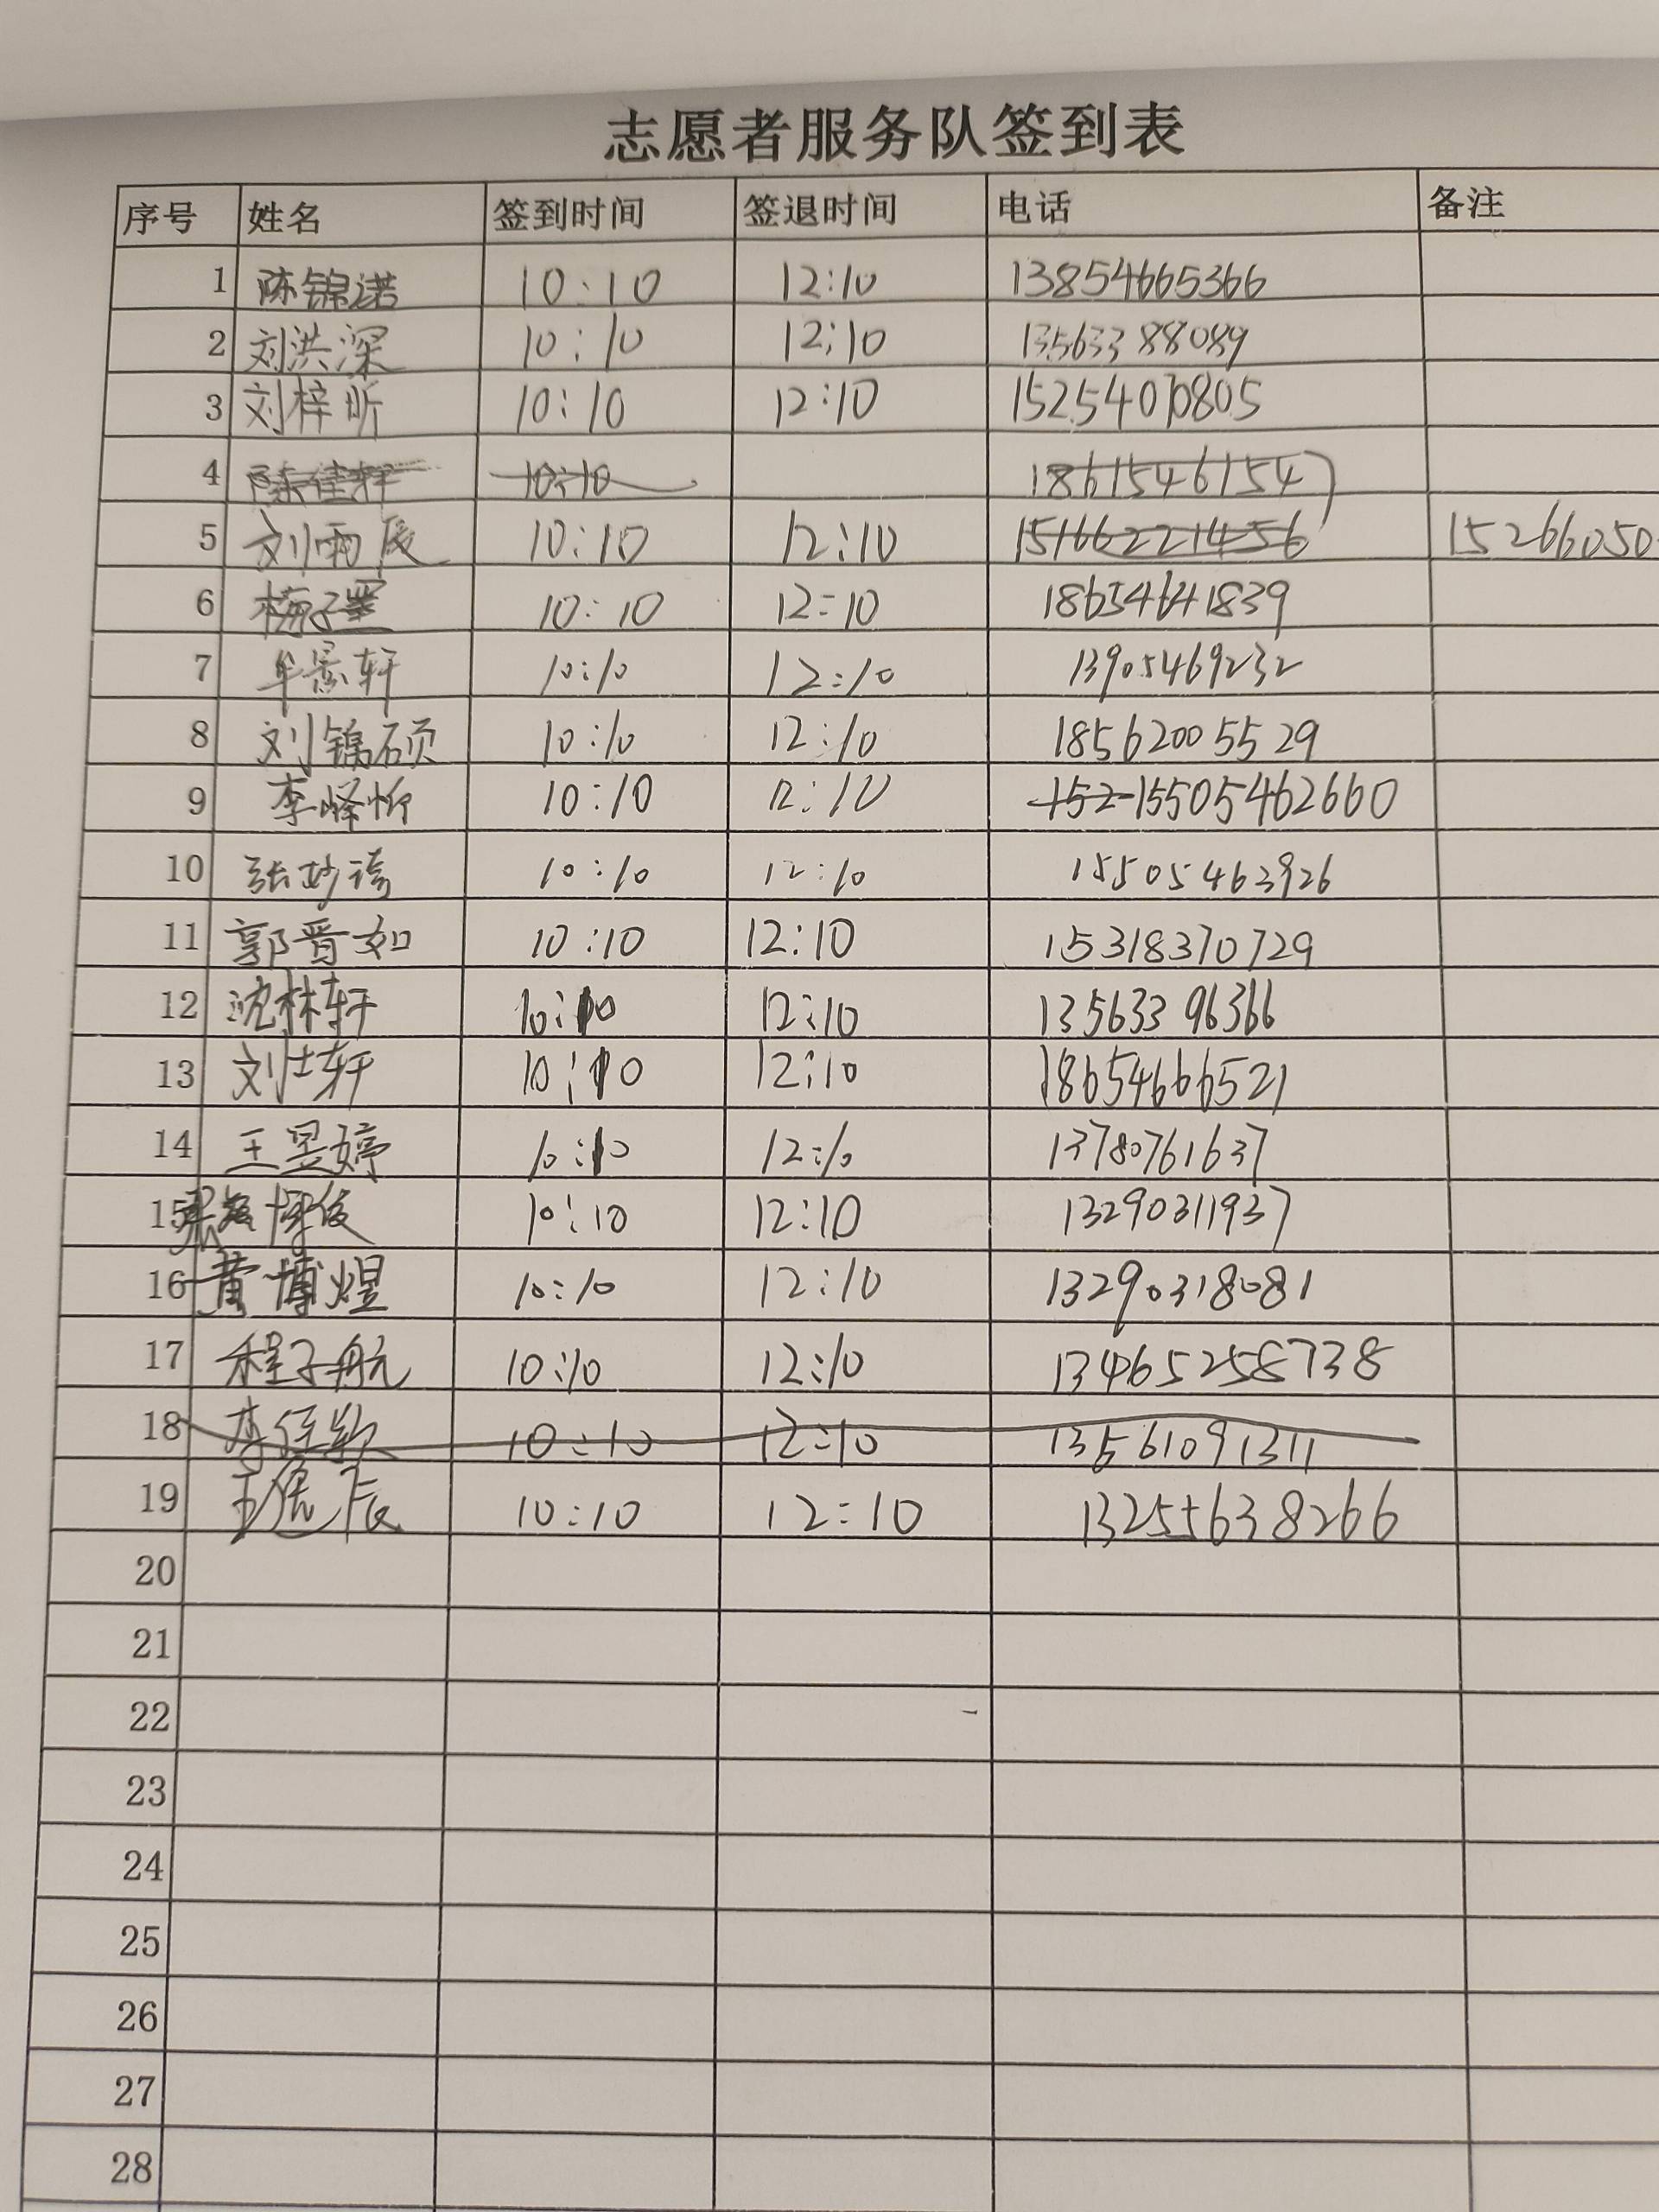 志愿者服务队签到表
序号 姓名 签到时间 签退时间 电话 备注
1 陈锦诺 10:10 12:10 13854665366
2 刘洪深 10:10 12:10 13563388089
3 刘梓昕 10:10 12:10
4 陈佳轩 10:10 18615461547
5 刘雨辰 10:10 12:10 15266050
6 梅子墨 10:10 12:10 18654641839
7 牟景轩 10:10 12:10 13905469232
8 刘锦硕 10:10 12:10 18562005529
9 李峄忻 10:10 12:10 152 15505462660
10 张妙 10:10 12:10 15505463926
11 郭晋如 10:10 12:10 15318370729
12 沈林轩 10:10 12:10 13563396366
13 刘士轩 10:10 12:10 18654666521
14 王昱婷 10:10 12:10 13780761637
15 10:10 12:10 13290311937
16 黄博煜 10:10 12:10 13290318081
17 程子航 10:10 12:10 13465258738
18 李 10:10 12:10 13561091311
19 王 辰 10:10 12:10 13255638266
20
21
22
23
24
25
26
27
28